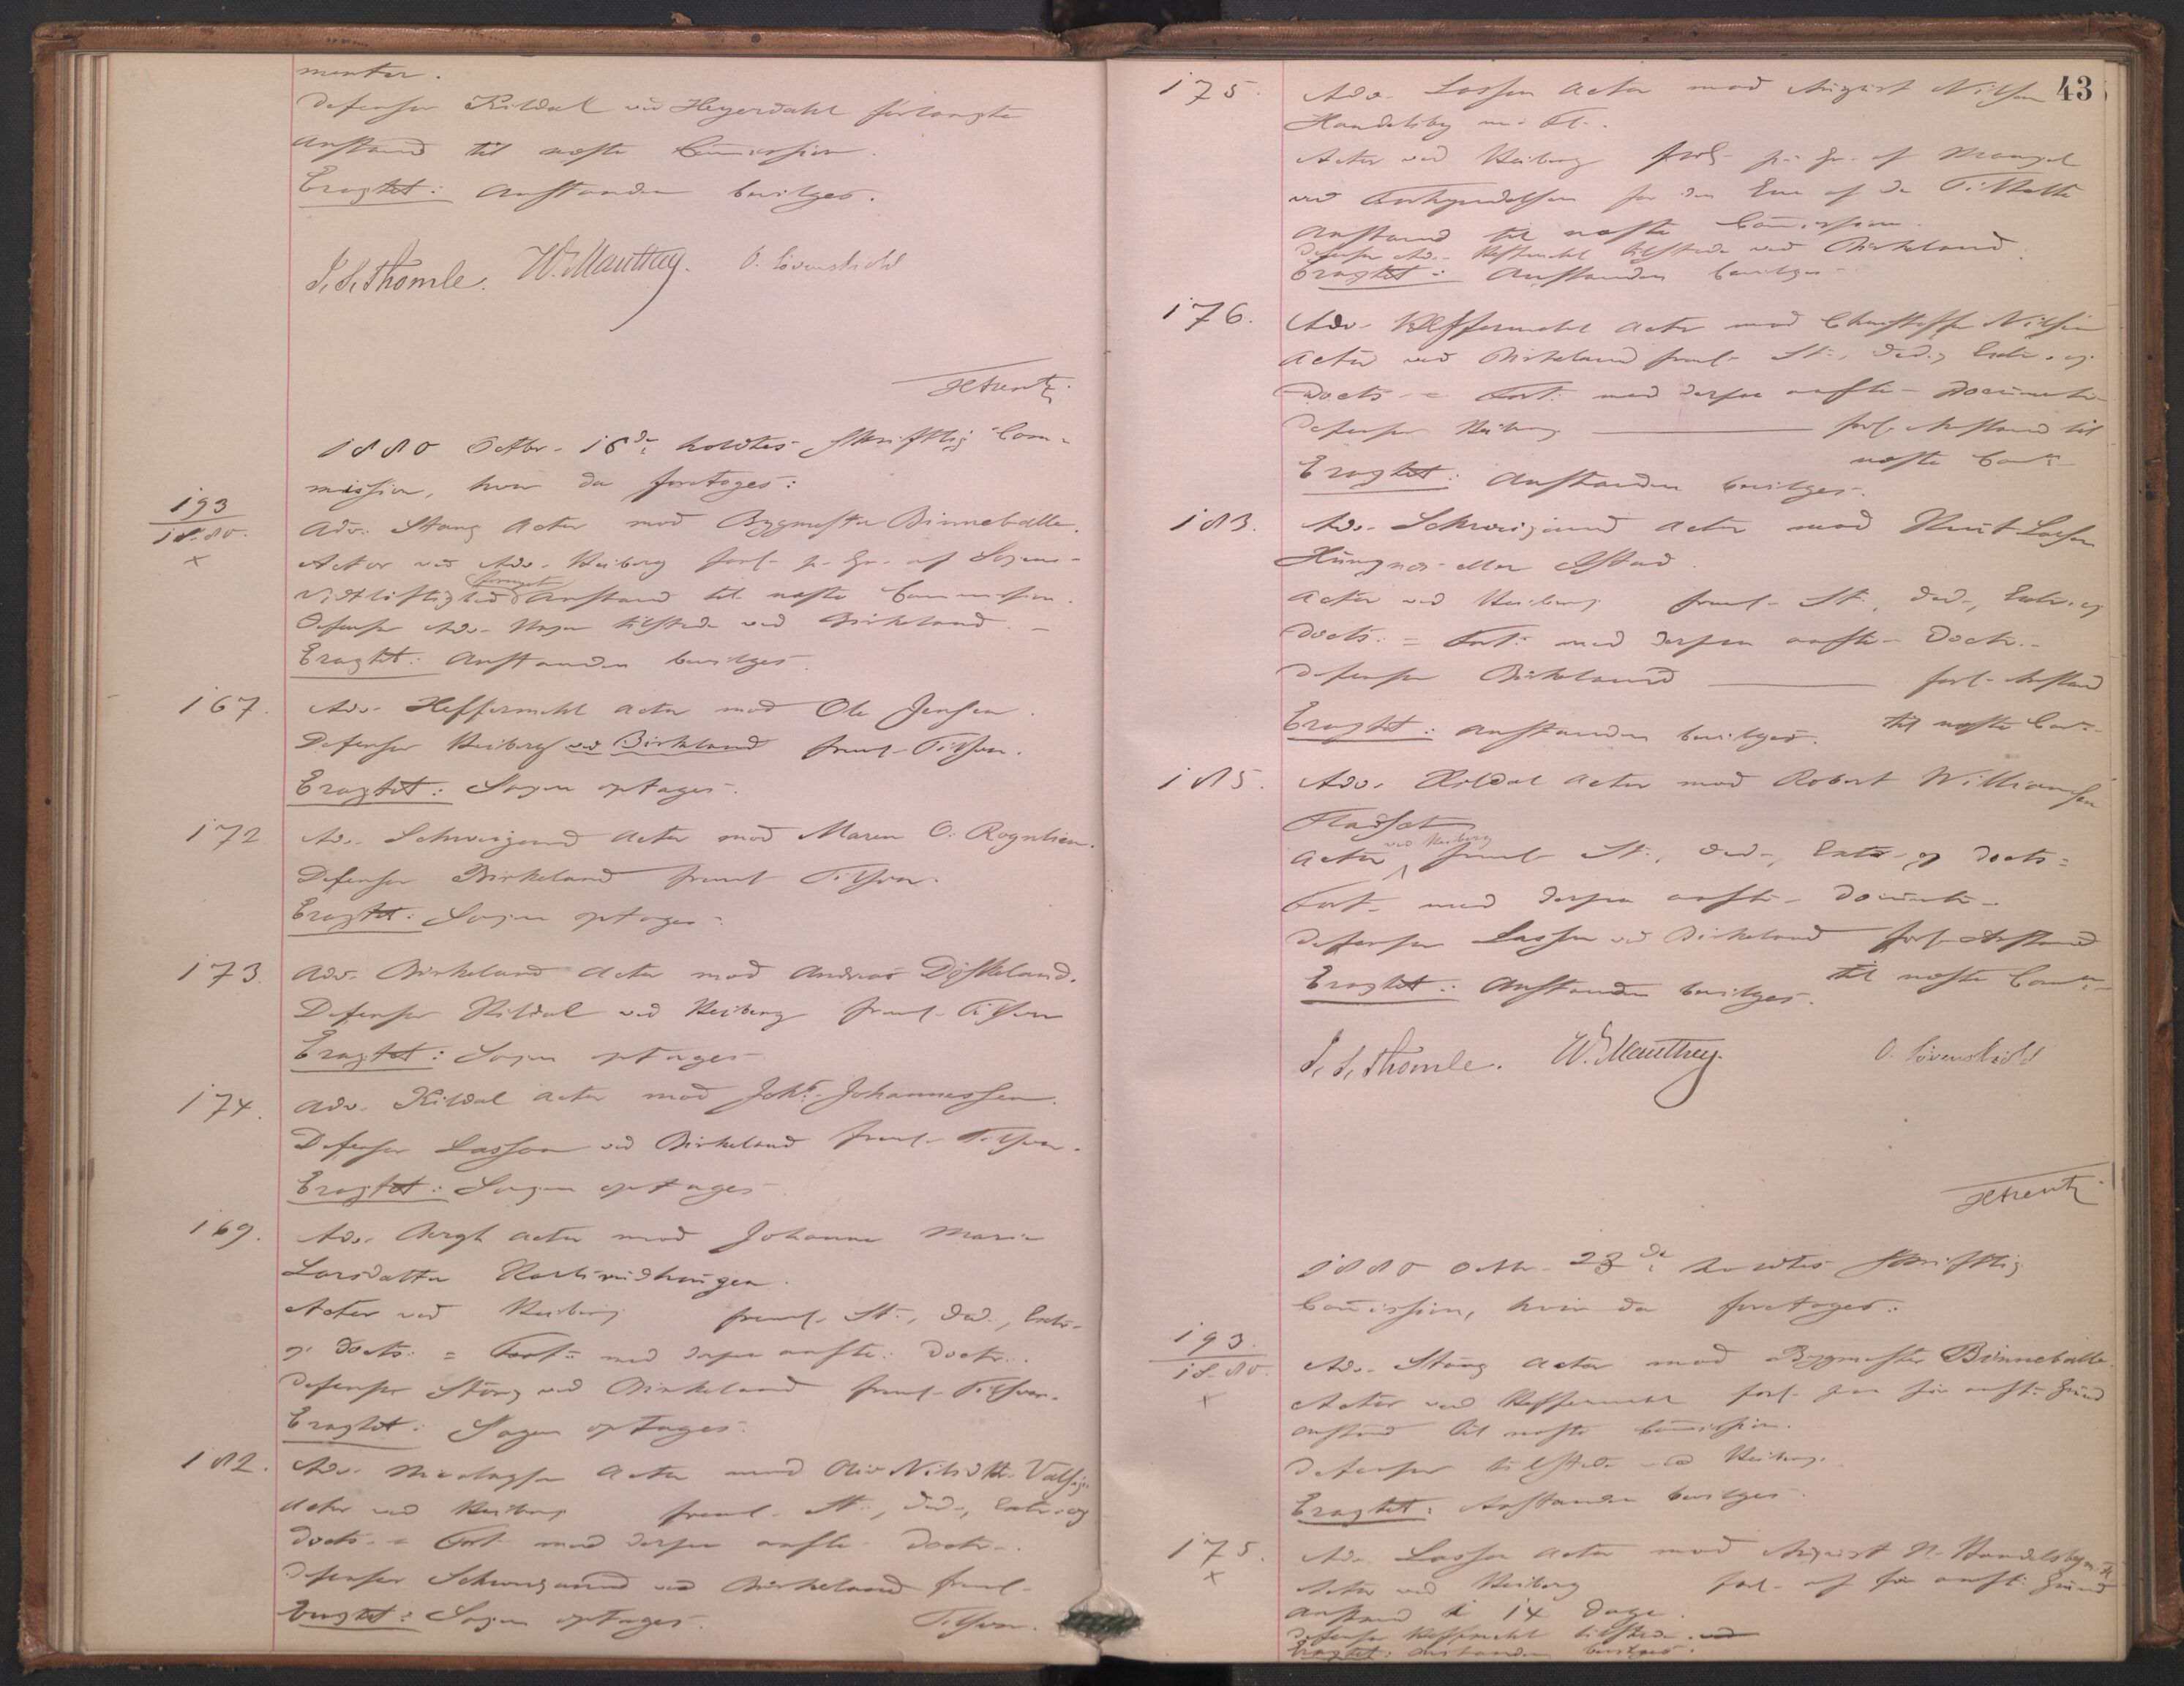 menter.
Defensor Kildal ved Heyerdahl forlangte
Anstand til næste Commission.
Eragtet: Anstanden bevilges.
I. S. Thomle. W. Manthey. O. Løvenskiold
HArentz
1880 Octbr. 16de holdtes skriftlig Com-
mission, hvor da foretoges:
193
18-80.
x
Adv. Stang Actor mod Bygmester Binneballe.
Actor ved Adv. Heiberg forl. p. Gr. af Sagens
Vidtløftighed fornyet Anstand til næste Commission.
Defensor Adv. tilstede ved Birkeland.
Eragtet: Anstanden bevilges.
167. Adv. Heffermehl Actor mod Ole Jensen.
Defensor Heiberg ved Birkeland freml. Tilsvar.
Eragtet: Sagen optages.
172 Adv. Schweigaard Actor mod Maren O. Rognlien.
Defensor Birkeland freml. Tilsvar.
Eragtet: Sagen optages.
173. Adv. Birkeland Actor mod Andreas Dyskeland.
Defensor Kildal ved Heiberg freml. Tilsvar
Eragtet: Sagen optages
174. Adv. Kildal Actor mod Johs. Johannessen.
Defensor Lasson ved Birkeland freml. Tilsvar.
Eragtet: Sagen optages
169. Adv. Bergh Actor mod Johanne Marie
Larsdatter
Actor ved Heiberg freml. St., Ded., Extr.
og Docts. = Fort. med derpaa anførte Doctr.
Defensor Stang ved Birkeland freml. Tilsvar.
Eragtet: Sagen optages.
182. Adv. Nicolaysen Actor mod Oliv Nilsdtr.
Actor ved Heiberg freml. St., Ded., Extr. og
Docts. = Fort. med derpaa anførte Doctr.
Defensor Schweigaard ved Birkeland freml.
Eragtet: Sagen optages. Tilsvar.
43
175. Adv. Lasson Actor mod August Nilsen
Handelsby m. Fl.
Actor ved Heiberg forl. p. Gr. af Mangel
ved Forkyndelsen for den Ene af de Tiltalte
Anstand til næste Commission.
Defensor Adv. Heffermehl tilstede ved Birkeland.
Eragtet: Anstanden bevilges
176. Adv. Heffermehl Actor mod Christoffer Nilsen
Actor ved Birkeland freml. St., Ded., Extr. og
Docts. = Fort. med derpaa anførte Documenter
Defensor Heiberg forl. Anstand til
næste Comn.
Eragtet: Anstanden bevilges.
183. Adv. Schweigaard Actor mod Knut Larsen
Hungnes eller
Actor ved Heiberg freml. St., Ded., Extr. og
Docts. = Fort. med derpaa anførte Doctr.
Defensor Birkeland forl. Anstand
til næste Comn.
Eragtet: Anstanden bevilges.
185. Adv. Kildal Actor mod Robert Williamsen
Fladset
Actor ved Heiberg freml. St., Ded., Extr. og Docts. =
Fort. med derpaa anførte Documenter
Defensor Lasson ved Birkeland forl. Anstand
til næste Comn.
Eragtet: Anstanden bevilges.
I. S. Thomle. W. Manthey. O. Løvenskiold
HArentz
1880 Octbr. 23de holdtes skriftlig
Commission, hvor da foretoges:
193.
18-80.
x
Adv. Stang Actor mod Bygmester Binneballe.
Actor ved Heffermehl forl. paa før anført Grund
Anstand til næste Commission.
Defensor tilstede ved Heiberg.
Eragtet: Anstanden bevilges.
175.
x
Adv. Lasson Actor mod August N. Handelsby m. Fl.
Actor ved Heiberg forl. af før anført Grund
Anstand i 14 Dage.
Defensor Heffermehl tilstede.
Eragtet: Anstanden bevilges.